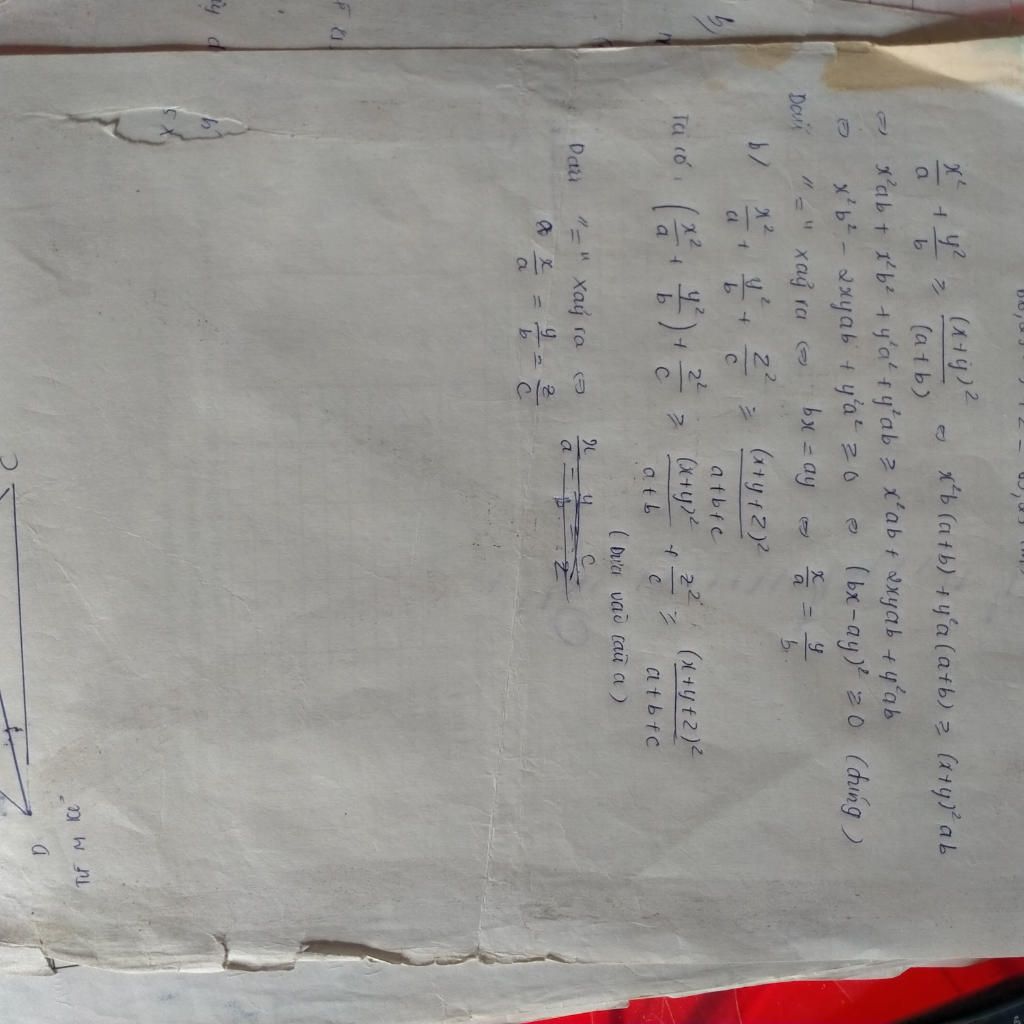 x²/a + y²/b ≥ (x+y)²/(a+b) ⇔ x²b(a+b) + y²a(a+b) ≥ (x+y)²ab
⇔ x²ab + x²b² + y²a² + y²ab ≥ x²ab + 2xyab + y²ab
⇔ x²b² - 2xyab + y²a² ≥ 0 ⇔ (bx - ay)² ≥ 0 (đúng)
Dấu "=" xảy ra ⇔ bx = ay ⇔ x/a = y/b.
b/ x²/a + y²/b + z²/c ≥ (x+y+z)²/a+b+c
Ta có: (x²/a + y²/b) + z²/c ≥ (x+y)²/a+b + z²/c ≥ (x+y+z)²/a+b+c
(Dựa vào câu a)
Dấu "=" xảy ra ⇔
x/a = y/b = z/c
C
D